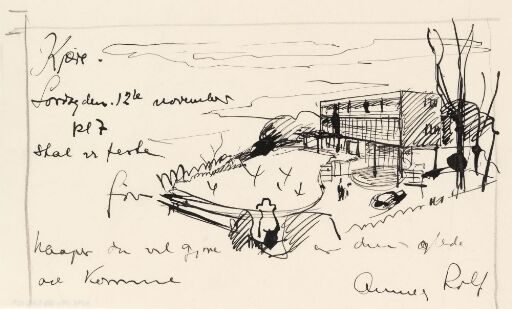 Kjære.
Lørdag den 12te november
kl 7
skal vi feste
for
haaper du vil gjøre os den glede
at komme
Annes Rolf